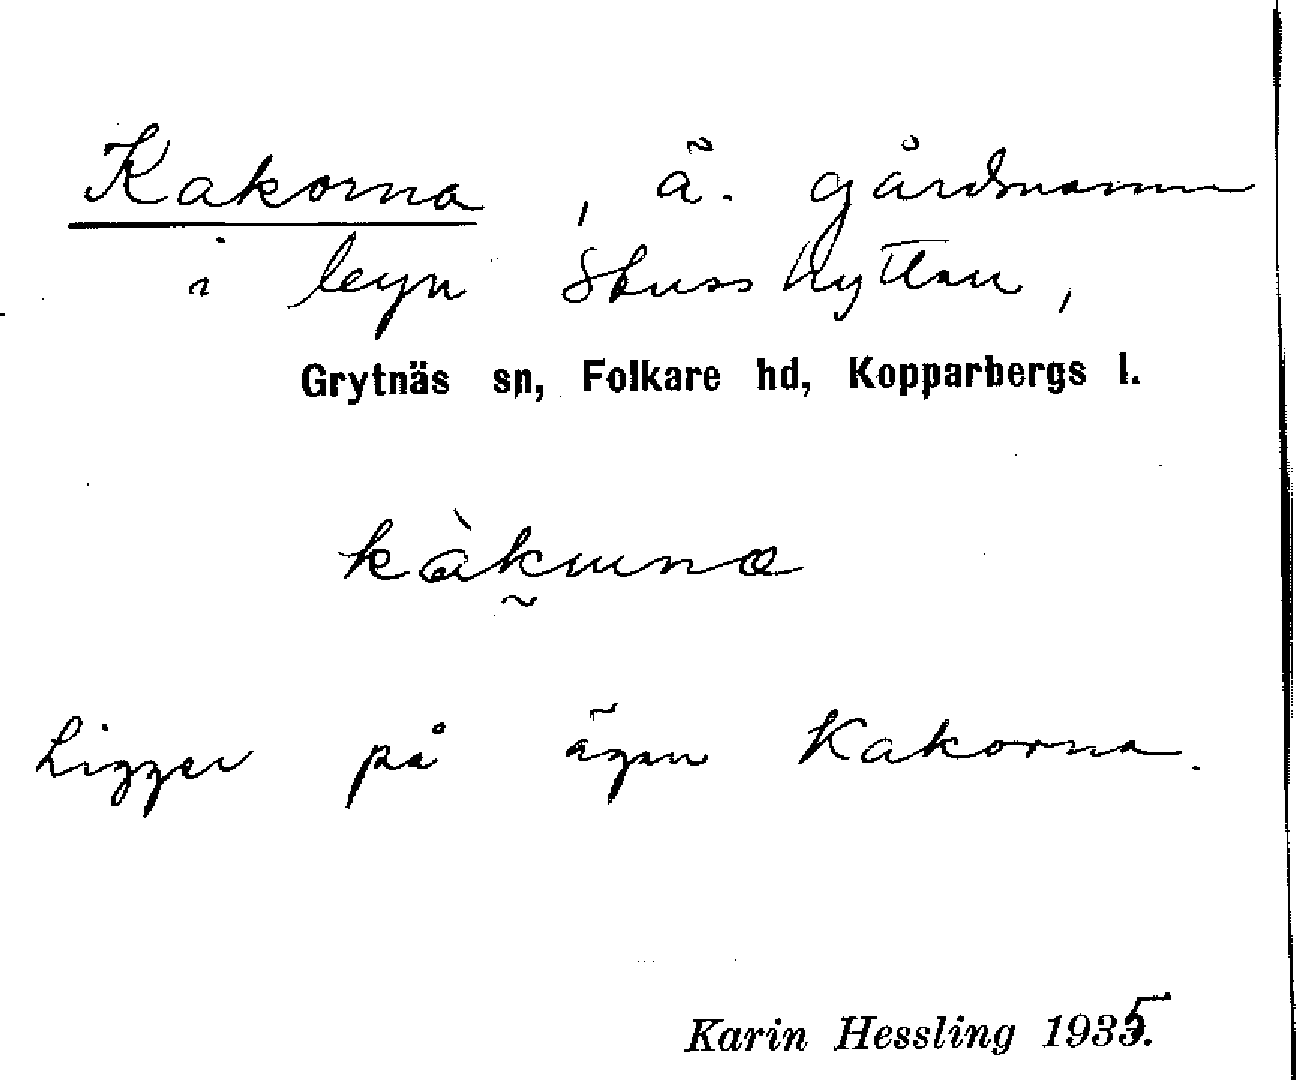 Kakorna, ä. gårdsnamn
i byn Stusshyttan,
Grytnäs sn, Folkare hd, Kopparbergs l.
kàkuna
Ligger på ägan Kakorna.
Karin Hessling 1935.